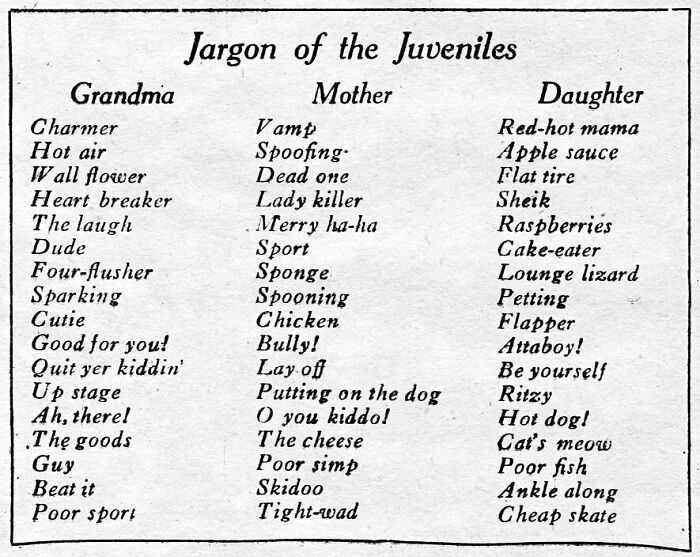 Jargon of the Juveniles
Grandma Mother Daughter
Charmer Vamp Red-hot mama
Hot air Spoofing Apple sauce
Wall flower Dead one Flat tire
Heart breaker Lady killer Sheik
The laugh Merry ha-ha Raspberries
Dude Sport Cake-eater
Four-flusher Sponge Lounge lizard
Sparking Spooning Petting
Cutie Chicken Flapper
Good for you! Bully! Attaboy!
Quit yer kiddin' Lay off Be yourself
Up stage Putting on the dog Ritzy
Ah, there! O you kiddo! Hot dog!
The goods The cheese Cat's meow
Guy Poor simp Poor fish
Beat it Skidoo Ankle along
Poor sport Tight-wad Cheap skate